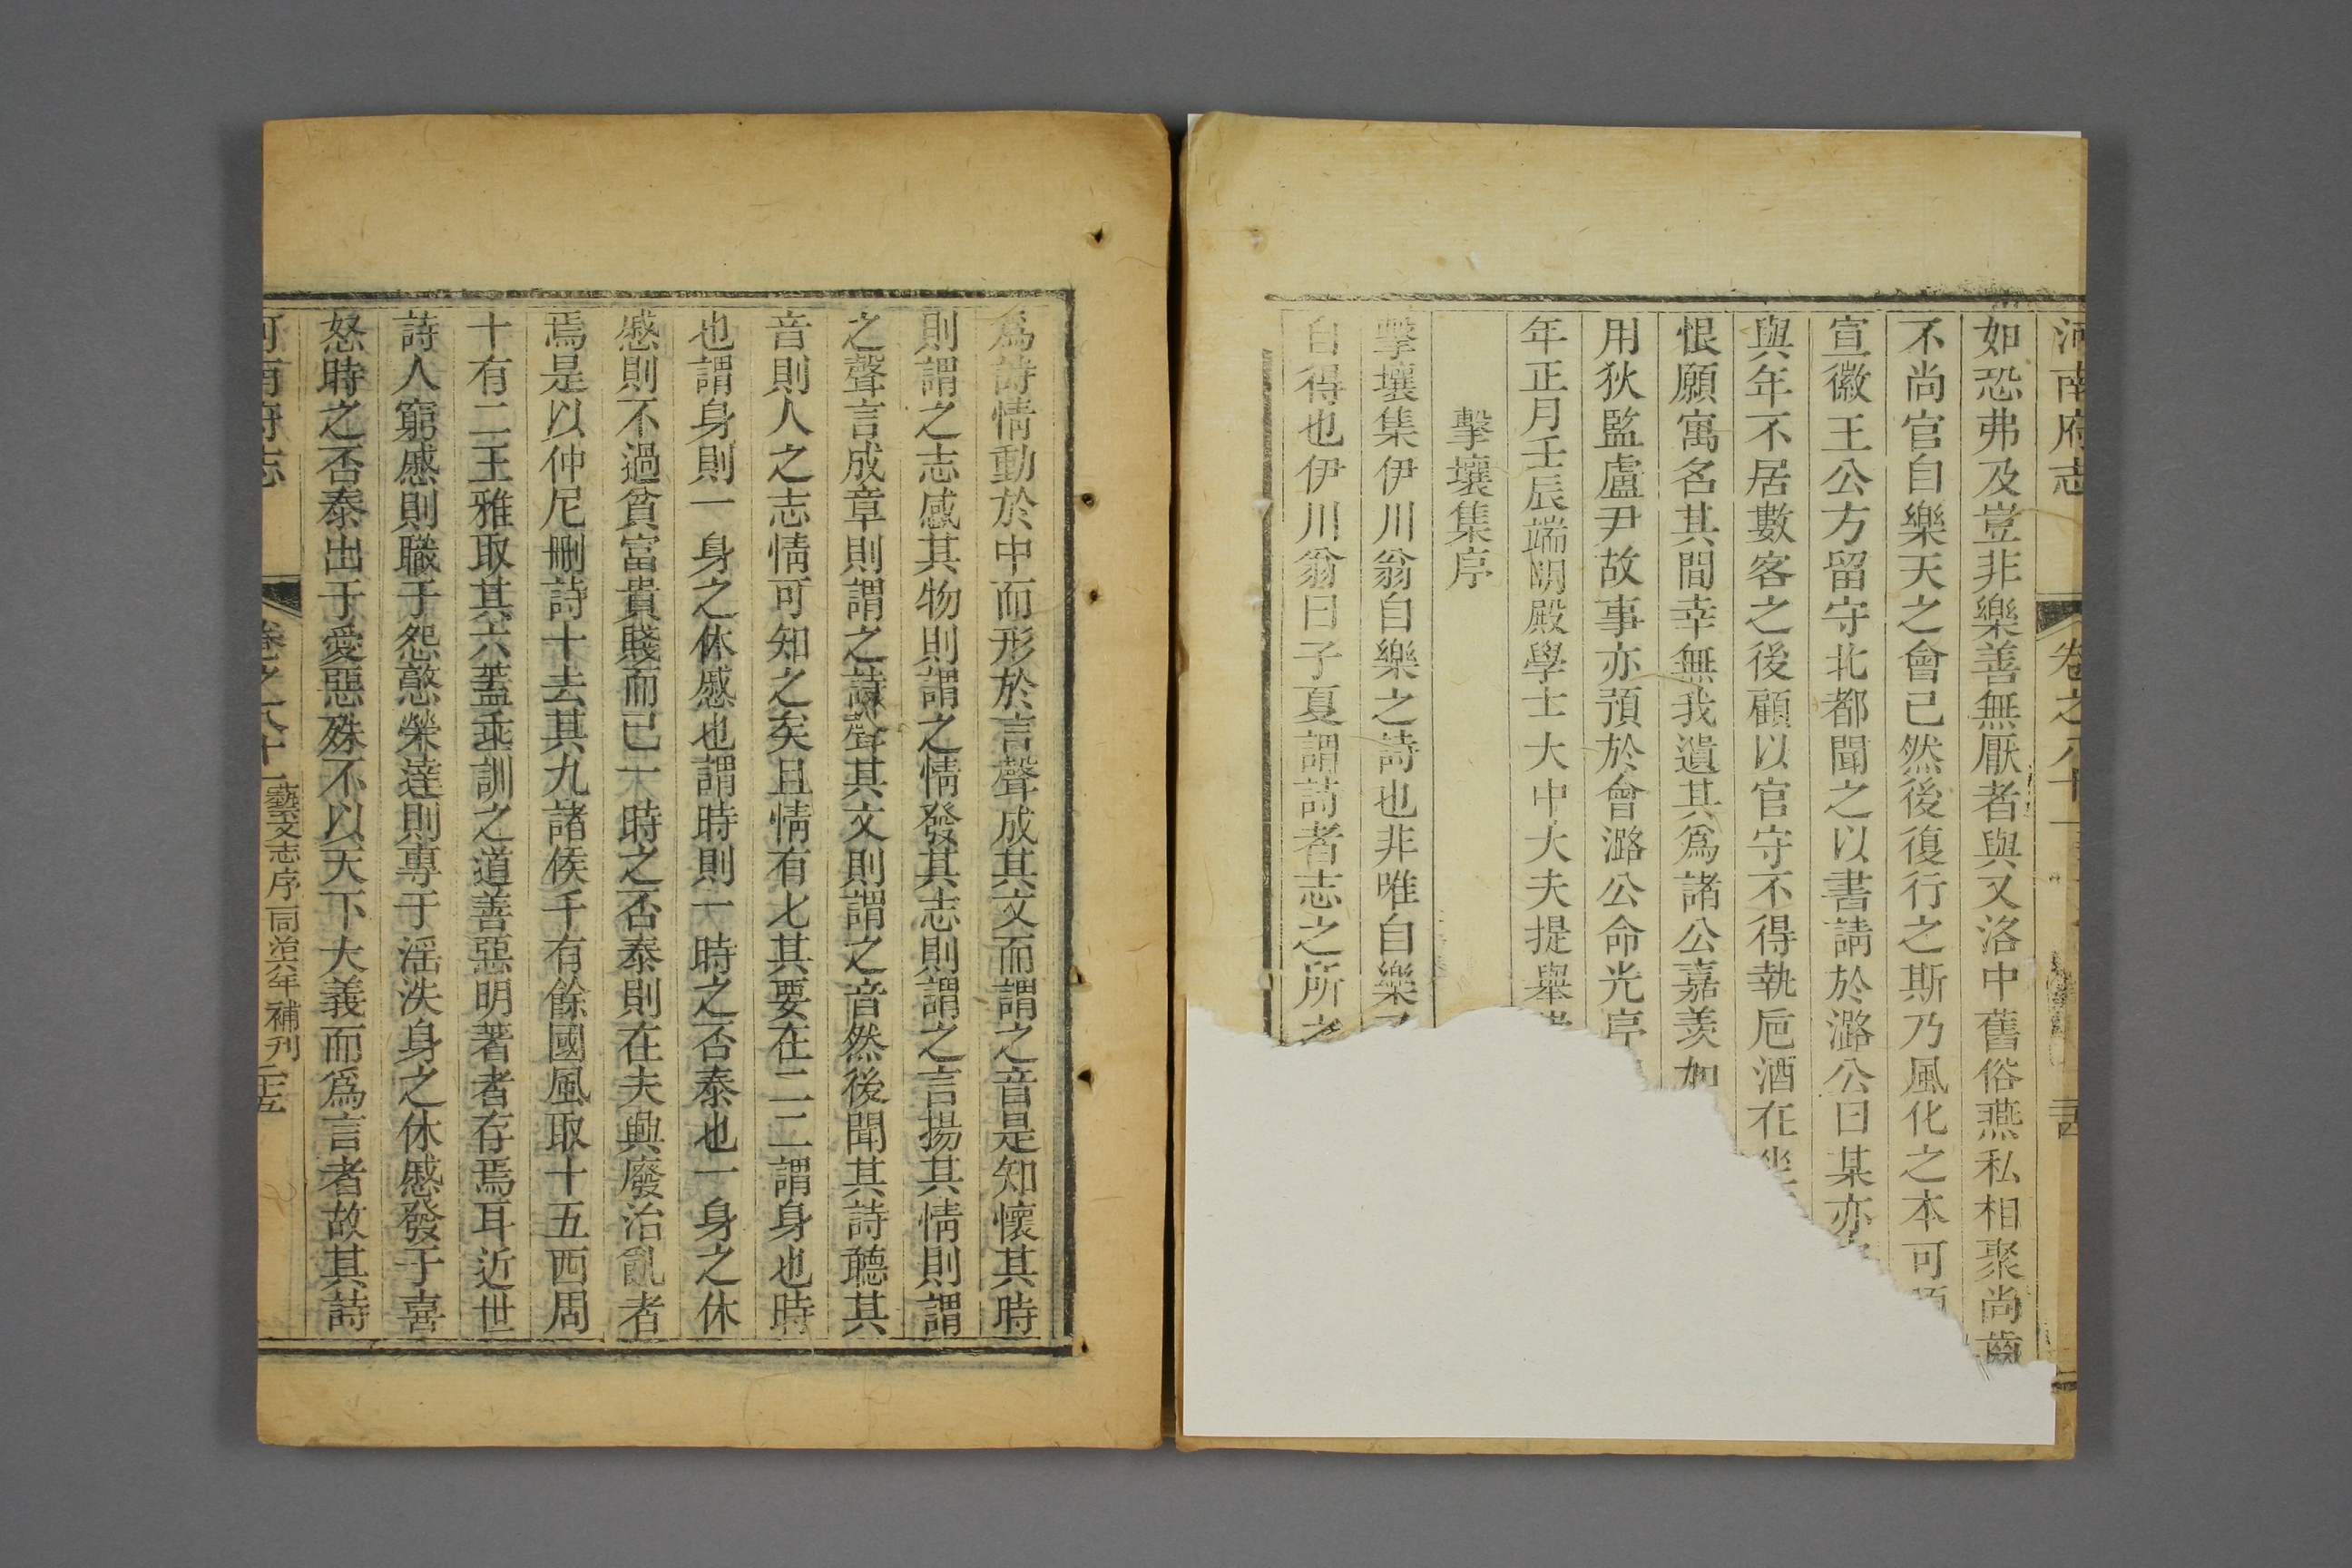 河南府志 卷之八十一
如恐弗及豈非樂善無厭者與又洛中舊俗燕私相聚尚齒
不尚官自樂天之會已然後復行之斯乃風化之本可
宣徽王公方留守北都聞之以書請於潞公曰某亦
與年不居數客之後顧以官守不得執巵酒在坐
恨願寓名其間幸無我遺其爲諸公嘉羨如
用狄監盧尹故事亦預於會潞公命光序
年正月壬辰端明殿學士大中大夫提舉
擊壤集序
擊壤集伊川翁自樂之詩也非唯自樂
自得也伊川翁曰子夏謂詩者志之所之
爲詩情動於中而形於言聲成其文而謂之音是知懷其時
則謂之志感其物則謂之情發其志則謂之言揚其情則謂
之聲言成章則謂之詩聲其文則謂之音然後聞其詩聽其
音則人之志情可知之矣且情有七其要在二二謂身也時
也謂身則一身之休慼也謂時則一時之否泰也一身之休
慼則不過貧富貴賤而已一時之否泰則在夫興廢治亂者
焉是以仲尼刪詩十去其九諸侯千有餘國風取十五西周
十有二王雅取其六蓋垂訓之道善惡明著者存焉耳近世
詩人窮慼則職于怨憝榮達則專于淫泆身之休慼發于喜
怒時之否泰出于愛惡殊不以天下大義而爲言者故其詩
河南府志 卷之八十一 藝文志序 同治六年補刊 二十五